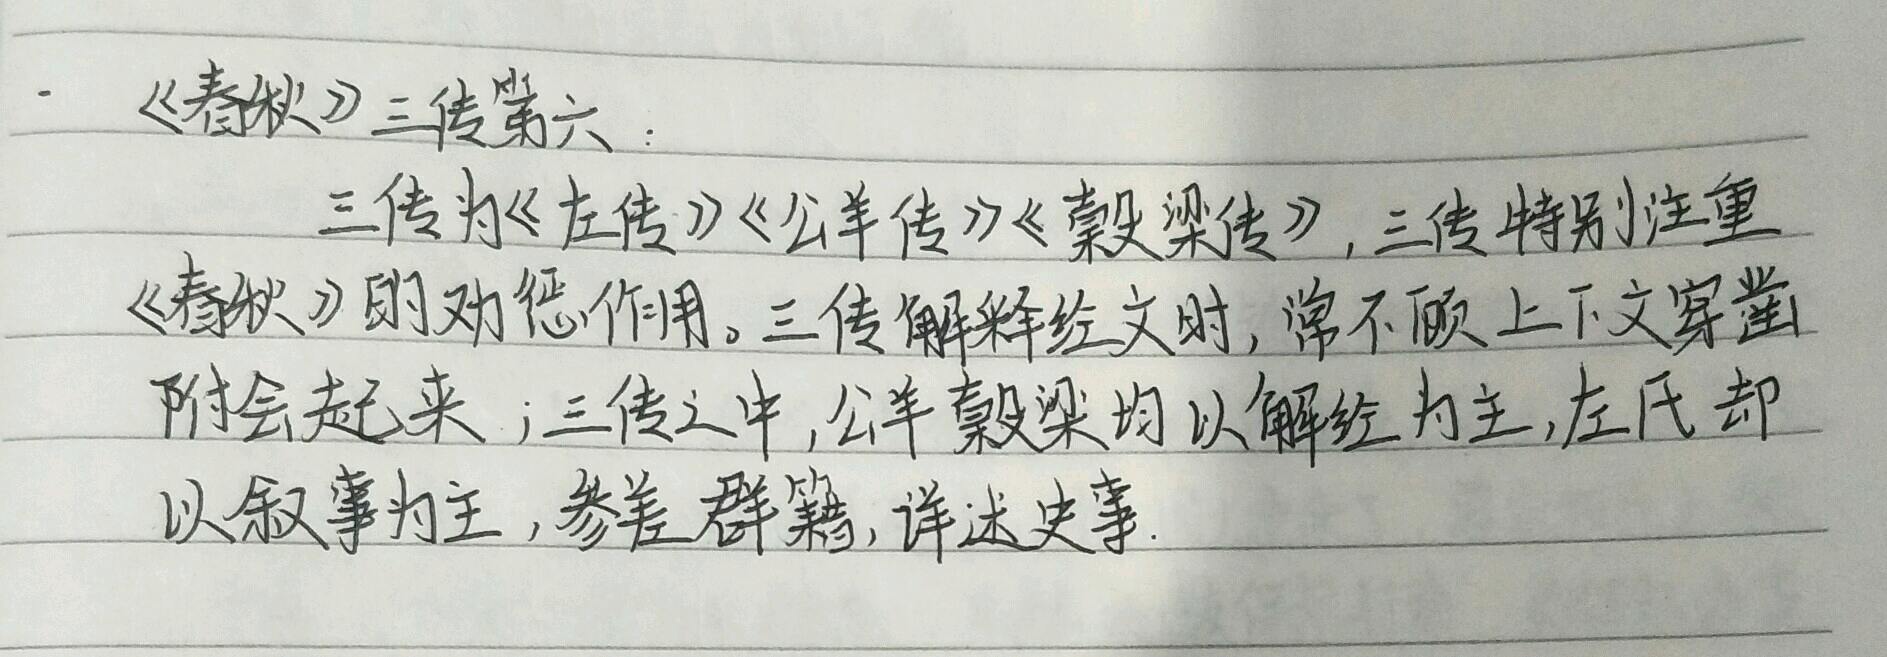 《春秋》三传第六：
三传为《左传》《公羊传》《穀梁传》，三传特别注重
《春秋》的劝惩作用。三传解释经文时，常不顾上下文穿凿
附会起来；三传之中，公羊穀梁均以解经为主，左氏却
以叙事为主，参差群籍，详述史事.